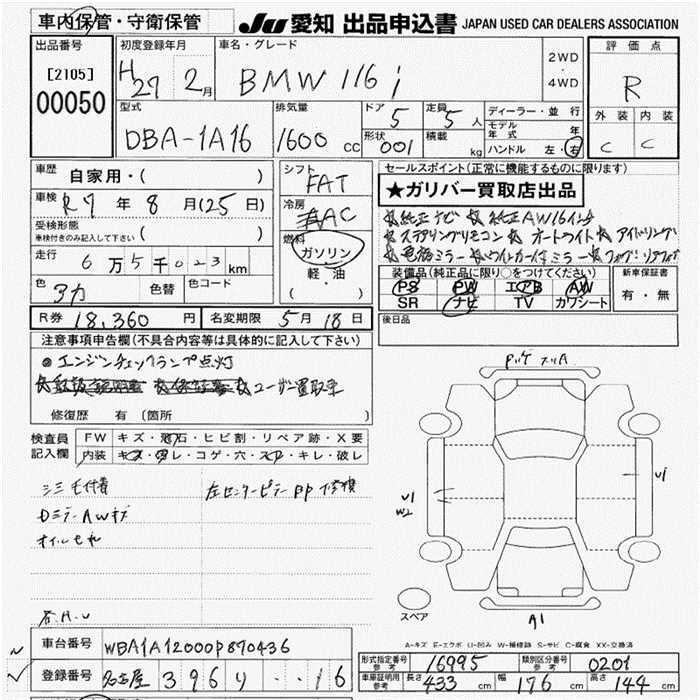 車内保管・守衛保管
JU 愛知 出品申込書 JAPAN USED CAR DEALERS ASSOCIATION
出品番号
[2105]
00050
初度登録年月
H27 2月
車名・グレード
BMW 116i
2WD
・
4WD
評価点
R
外装 内装
C C
型式
DBA-1A16
排気量
1600 cc
ドア 5
定員 5人
形状 001
積載 kg
ディーラー・並行
モデル年式 年
ハンドル 左・右
車歴
自家用・( )
車検
R7年 8月(25日)
受検形態
車検付きのみ記入して下さい ( )
走行
6万5千023km
色 アカ
色替
色コード
シフト
FAT
冷房
AAC
燃料
ガソリン
軽・油
( )
セールスポイント(正常に機能するものに限ります)
★ガリバー買取店出品
純正ナビ 純正AW16インチ
ステアリングリモコン オートライト アイドリング
装備品(純正品に限り○をつけてください)
PS PW エアB AW
SR ナビ TV カワシート
新車保証書
有・無
R券 18,360円
名変期限 5月18日
後日品
注意事項申告欄(不具合内容等は具体的に記入して下さい)
エンジンチェックランプ点灯
ユーザー買取車
修復歴 有(箇所 )
検査員記入欄
FW キズ・飛石・ヒビ割・リペア跡・X要
内装 キズ・汚レ・コゲ・穴・スレ・キレ・破レ
左センターピラーPP修横
DミラーAWキズ
オイルモレ
P.H.U
U1
W2
U1
A1
スペア
A-キズ E-エクボ U-凹み W-補修跡 S-サビ C-腐食 XX-交換済
車台番号 WBA1A12000P870436
登録番号 名古屋 396 り ・・16
形式指定番号 参考 16995
類別区分番号 参考 0201
車庫証明用 参考 長さ 433 cm 幅 176 cm 高さ 144 cm